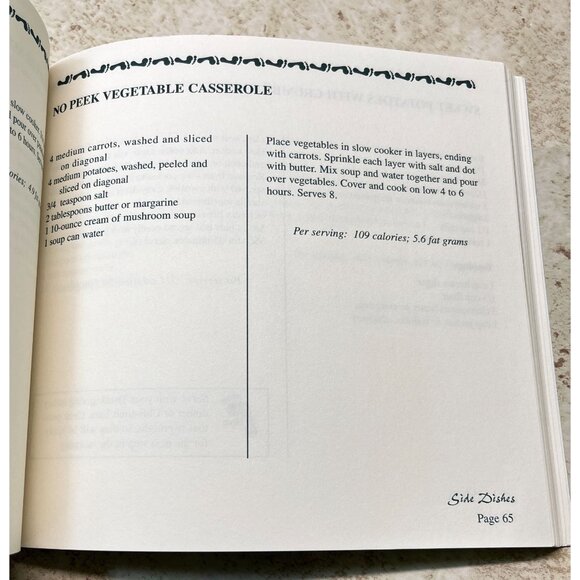 NO PEEK VEGETABLE CASSEROLE
4 medium carrots, washed and sliced
on diagonal
4 medium potatoes, washed, peeled and
sliced on diagonal
3/4 teaspoon salt
2 tablespoons butter or margarine
1 10-ounce cream of mushroom soup
1 soup can water
Place vegetables in slow cooker in layers, ending
with carrots. Sprinkle each layer with salt and dot
with butter. Mix soup and water together and pour
over vegetables. Cover and cook on low 4 to 6
hours. Serves 8.
Per serving: 109 calories; 5.6 fat grams
Side Dishes
Page 65